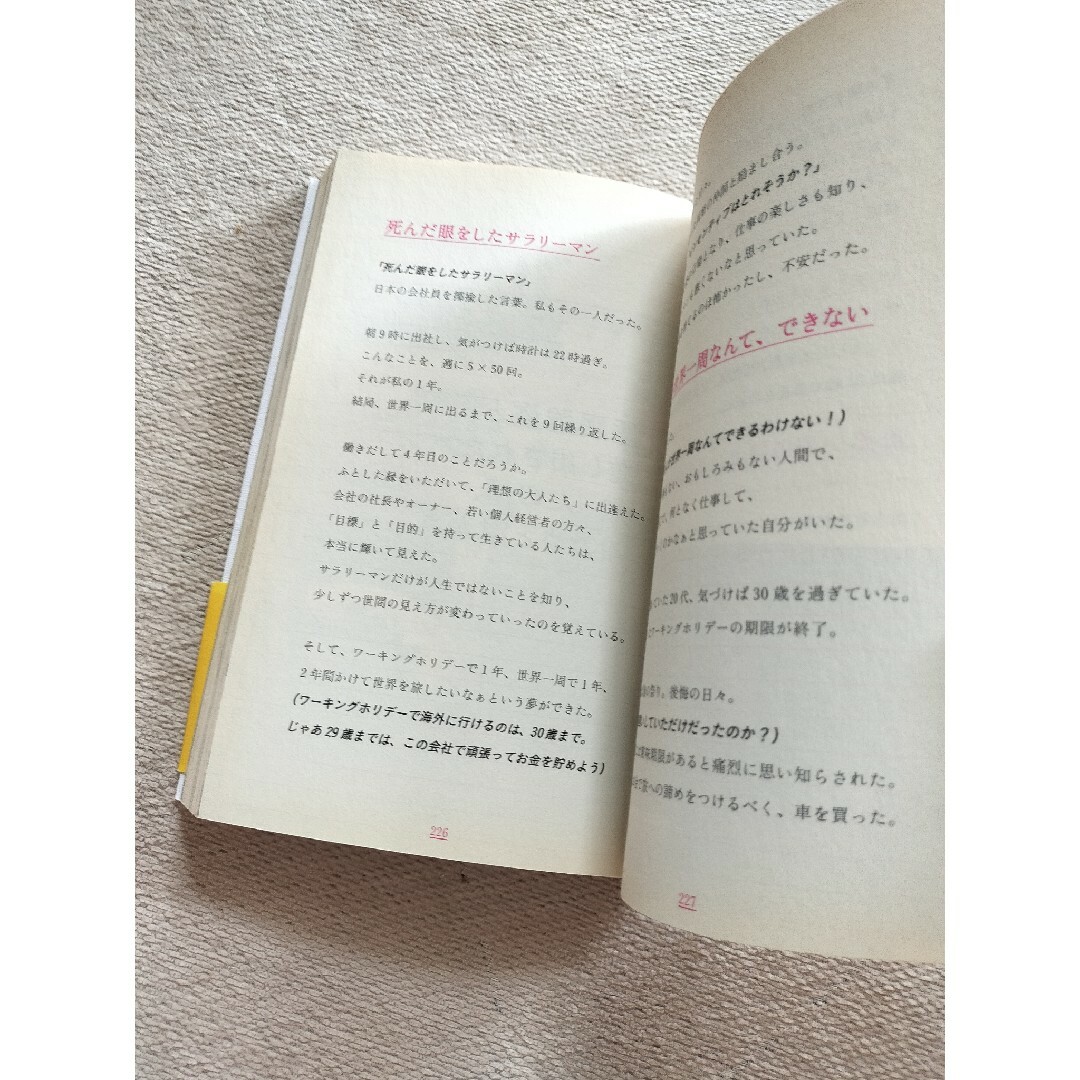 死んだ眼をしたサラリーマン
「死んだ眼をしたサラリーマン」
日本の会社員を揶揄した言葉。私もその一人だった。
朝9時に出社し、気がつけば時計は22時過ぎ。
こんなことを、週に5×50回。
それが私の1年。
結局、世界一周に出るまで、これを9回繰り返した。
働きだして4年目のことだろうか。
ふとした縁をいただいて、「理想の大人たち」に出逢えた。
会社の社長やオーナー、若い個人経営者の方々、
「目標」と「目的」を持って生きている人たちは、
本当に輝いて見えた。
サラリーマンだけが人生ではないことを知り、
少しずつ世間の見え方が変わっていったのを覚えている。
そして、ワーキングホリデーで1年、世界一周で1年、
2年間かけて世界を旅したいなぁという夢ができた。
(ワーキングホリデーで海外に行けるのは、30歳まで。
じゃあ29歳までは、この会社で頑張ってお金を貯めよう)
226
仲間と励まし合う。
ンセンティブはとれそうか?」
となり、仕事の楽しさも知り、
悪くないなと思っていた。
るのは怖かったし、不安だった。
界一周なんて、できない
世界一周なんてできるわけない!)
ない、おもしろみもない人間で、
何となく仕事して、
のかなぁと思っていた自分がいた。
ていた20代、気づけば30歳を過ぎていた。
ワーキングホリデーの期限が終了。
後悔の日々。
していただけだったのか?)
期限があると痛烈に思い知らされた。
への諦めをつけるべく、車を買った。
227